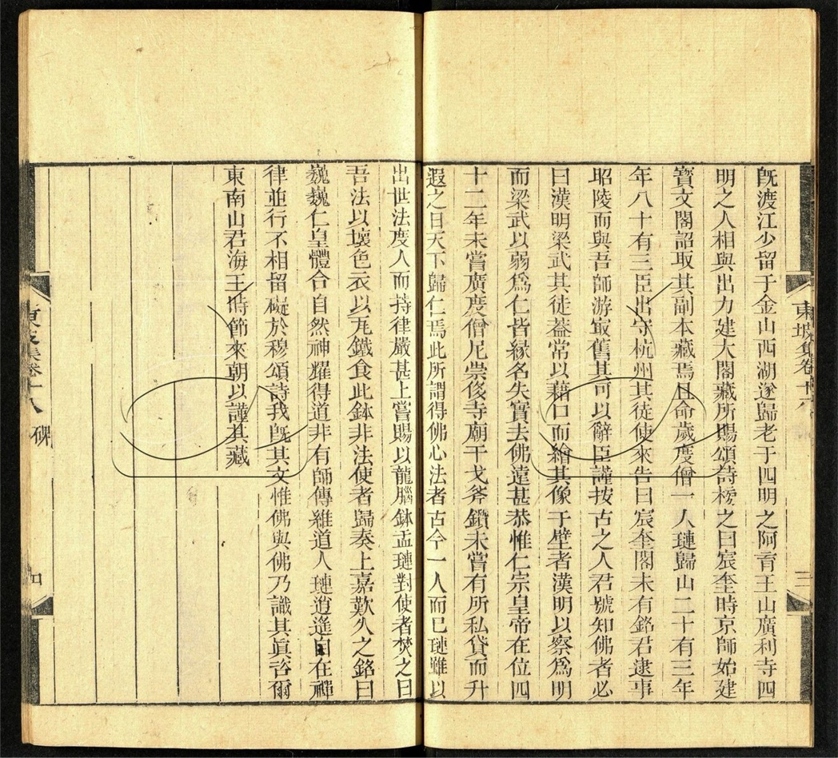 既渡江少留于金山西湖遂歸老于四明之阿育王山廣利寺四
明之人相與出力建大閣藏所賜頌詩榜之曰宸奎時京師始建
寶文閣詔取其副本藏焉且命歲度僧一人璉歸山二十有三年
年八十有三臣出守杭州其徒使來告曰宸奎閣未有銘君逮事
昭陵而與吾師游最舊其可以辭臣謹按古之人君號知佛者必
曰漢明梁武其徒蓋常以藉口而繪其像于壁者漢明以察為明
而梁武以弱為仁皆緣名失實去佛遠甚恭惟仁宗皇帝在位四
十二年未嘗廣度僧尼崇侈寺廟干戈斧鑕未嘗有所私貸而升
遐之日天下歸仁焉此所謂得佛心法者古今一人而已璉雖以
出世法度人而持律嚴甚上嘗賜以龍腦鉢盂璉對使者焚之曰
吾法以壞色衣以瓦鐵食此鉢非法使者歸奏上嘉歎久之銘曰
巍巍仁皇體合自然神耀得道非有師傳維道人璉逍遙自在禪
律並行不相留礙於穆頌詩我既其文惟佛與佛乃識其真咨爾
東南山君海王時節來朝以謹其藏
東坡集卷十八
碑
四